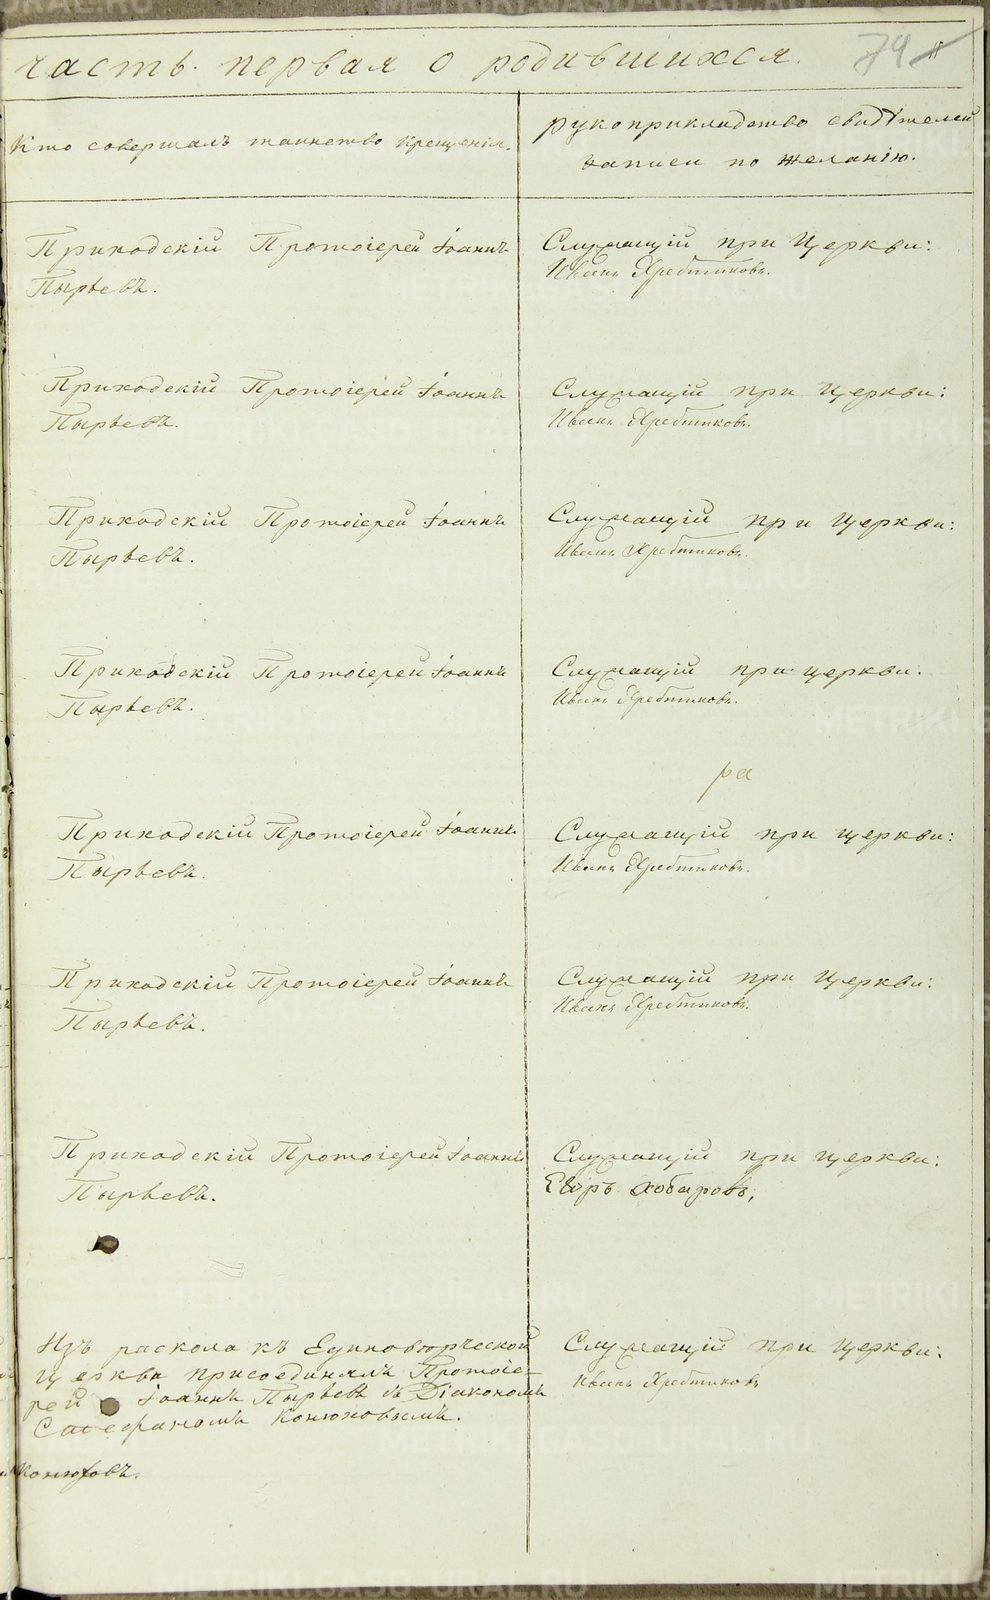 часть первая о родившихся. 74
Кто совершалъ таинство крещенія.
рукоприкладство свидѣтелей
записи по желанію.
Приходскій Протоіерей Іоаннъ
Пырьевъ.
Служащій при Церкви:
Иванъ Хребтиковъ.
Приходскій Протоіерей Іоаннъ
Пырьевъ.
Служащій при Церкви:
Иванъ Хребтиковъ.
Приходскій Протоіерей Іоаннъ
Пырьевъ.
Служащій при Церкви:
Иванъ Хребтиковъ.
Приходскій Протоіерей Іоаннъ
Пырьевъ.
Служащій при церкви.
Иванъ Хребтиковъ.
ра
Приходскій Протоіерей Іоаннъ
Пырьевъ.
Служащій при церкви:
Иванъ Хребтиковъ.
Приходскій Протоіерей Іоаннъ
Пырьевъ.
Служащій при Церкви:
Иванъ Хребтиковъ.
Приходскій Протоіерей Іоаннъ
Пырьевъ.
Служащій при церкви:
Изъ раскола къ Единовѣрческой
церкви присоединилъ Протоіе-
рей Іоаннъ Пырьевъ съ Діакономъ
Конюховымъ.
Служащій при Церкви:
Иванъ Хребтиковъ
Конюховъ.
METRIKI.GASO-URAL.RU